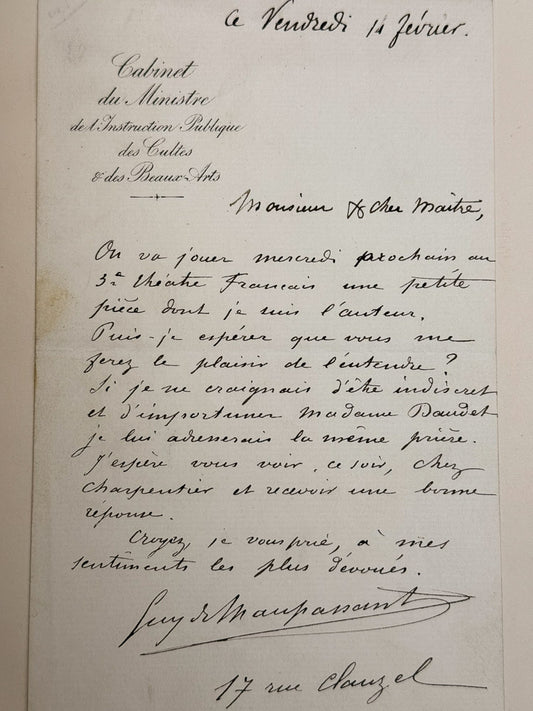 ce Vendredi 14 février.
Cabinet
du Ministre
de l'Instruction Publique
des Cultes
& des Beaux-Arts
Monsieur & cher Maître,
On va jouer mercredi prochain au
3e théâtre Français une petite
pièce dont je suis l'auteur.
Puis-je espérer que vous me
ferez le plaisir de l'entendre ?
Si je ne craignais d'être indiscret
et d'importuner Madame Daudet
je lui adresserais la même prière.
J'espère vous voir, ce soir, chez
Charpentier et recevoir une bonne
réponse.
Croyez, je vous prie, à mes
sentiments les plus dévoués.
Guy de Maupassant
17 rue Clauzel